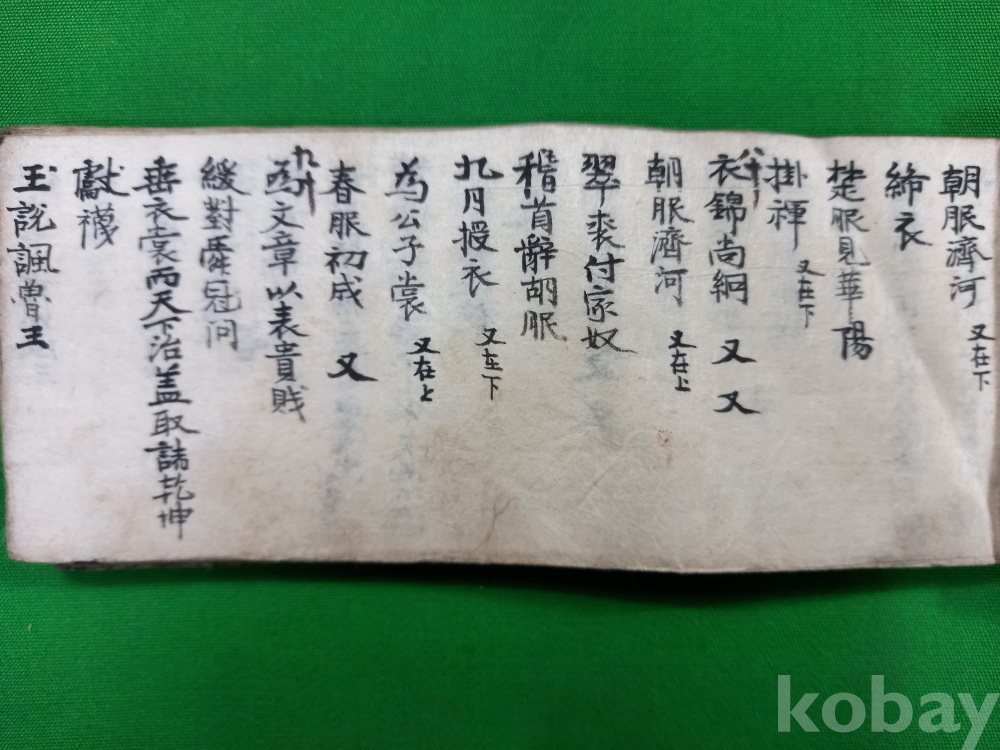 朝服濟河 又在下
絺衣
楚服見華陽
掛褌 又在下
八十
衣錦尚絅 又 又
朝服濟河 又在上
翠裘付家奴
稽首辭胡服
九月授衣 又在下
為公子裳 又在上
春服初成 又
九十
為文章以表貴賎
緩對舜冠问
垂衣裳而天下治盖取諸乾坤
獻襪
玉說諷魯王
kobay